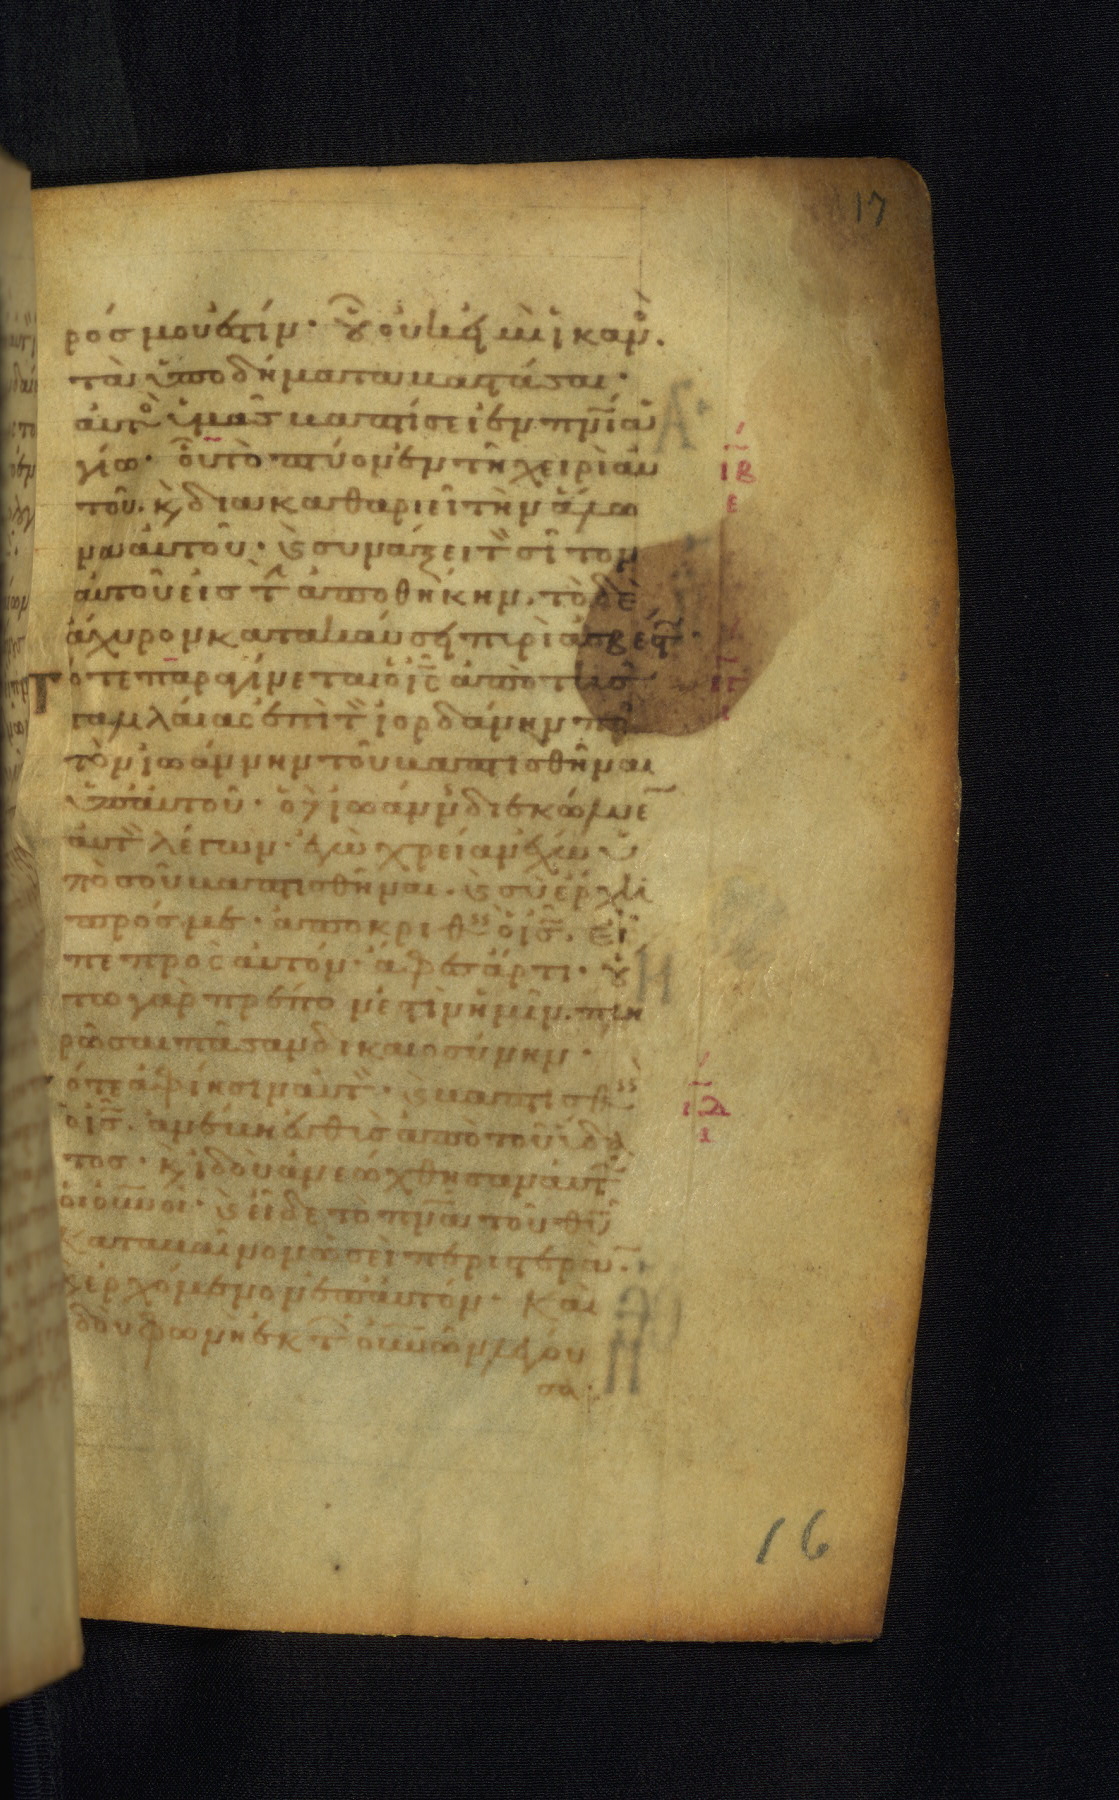 17
ρός μου ἐστίν· οὗ οὐκ εἰμὶ ἱκαν
τὰ ὑποδήματα βαστάσαι·
αὐτὸ ὑμᾶς βαπτίσει ἐν πνι ἁ
γίω· οὗ τὸ πτύον ἐν τῆ χειρὶ αὐ
τοῦ. κ διακαθαριεῖ τὴν ἅλω
να αὐτοῦ· κ συνάξει τ σῖτον
αὐτοῦ εἰς τ ἀποθήκην. τὸ δὲ
ἄχυρον κατακαύσει πυρὶ ἀσβέστ·
Τότε παραγίνεται ὁ ις ἀπὸ τῆς
γαλιλαίας ἐπὶ τ ἰορδάνην πρ
τὸν ἰωάννην τοῦ βαπτισθῆναι
ὑπ' αὐτοῦ· ὁ δὲ ἰωάνν διεκώλυε
αὐτ λέγων· ἐγὼ χρείαν ἔχω ὑ
πὸ σοῦ βαπτισθῆναι. κ σὺ ἔρχη
πρός με· ἀποκριθς ὁ ις. εἶ
πε πρὸς αὐτόν· ἄφες ἄρτι· οὕ
τω γὰρ πρέπον ἐστὶν ἡμῖν. πλη
ρῶσαι πᾶσαν δικαιοσύνην·
τότε ἀφίησιν αὐτ· κ βαπτισθς
ὁ ις. ἀνέβη εὐθὺς ἀπὸ τοῦ ὕδα
τος· κ ἰδοὺ ἀνεώχθησαν αὐτ
οἱ οὐνοι· κ εἶδε τὸ πνα τοῦ θυ
καταβαῖνον ὡσεὶ περιστεράν.
κ ἐρχόμενον ἐπ' αὐτόν· καὶ
ἰδοὺ φωνὴ ἐκ τ οὐνῶν λέγου
σα·
ιβ
ε
ιγ
ι
ιδ
α
16